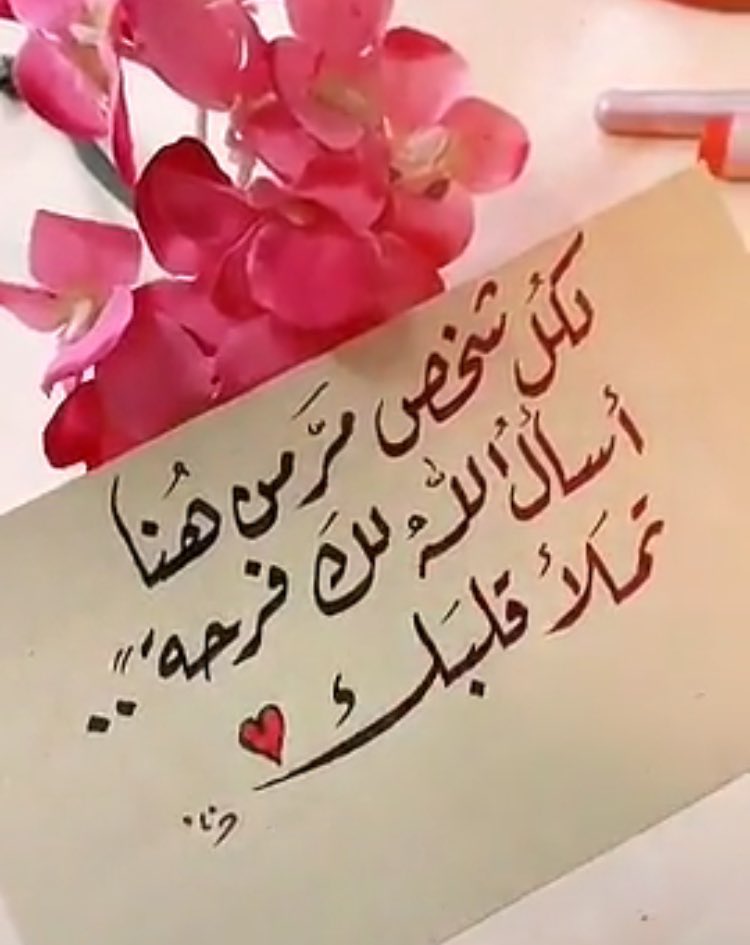 لكلُ شخص مرَّ من هُنا
أسألُ اللّٰهُ لكَ فرحه"..
تملَأ قلبَك